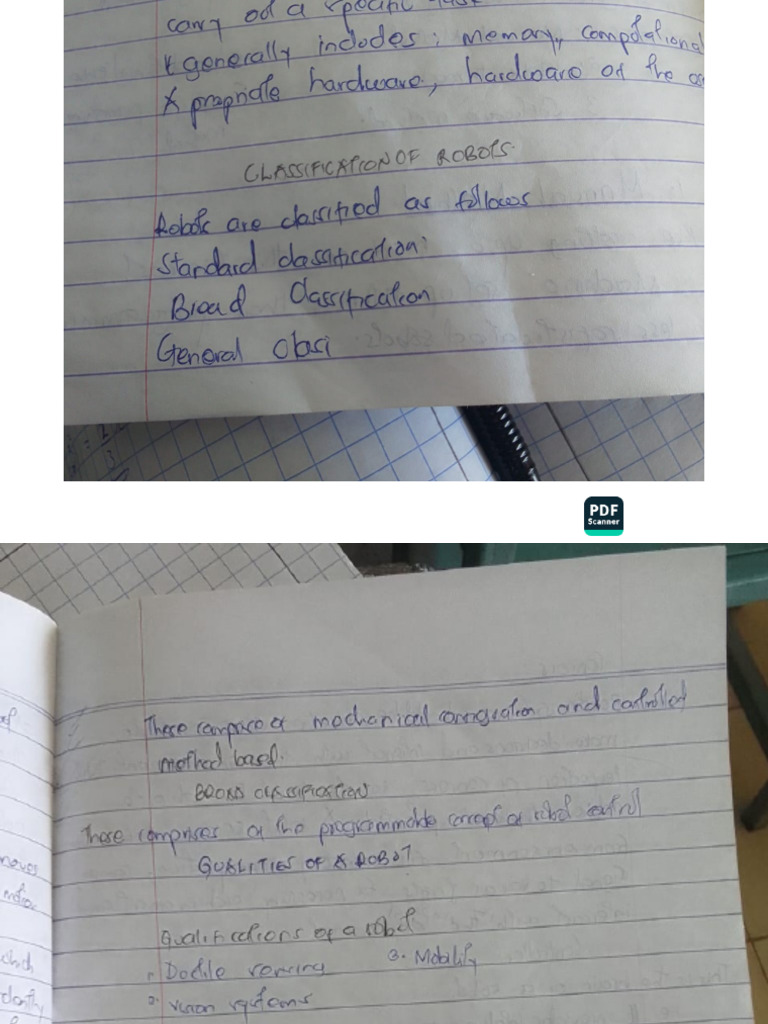 carry od a specific task
generally includes: memory, computational
propriate hardware, hardware of the
CLASSIFICATION OF ROBOTS.
Robots are classified as follows
Standard classification
Broad Classification
General Classi
PDF
Scanner
These comprise of mechanical and controlled
method based.
BROAD CLASSIFICATION
These comprises of the programmable concept of robot control
QUALITIES OF A ROBOT
Qualifications of a robot
1. Dactile sensing 3. Mobility
2. vision systems